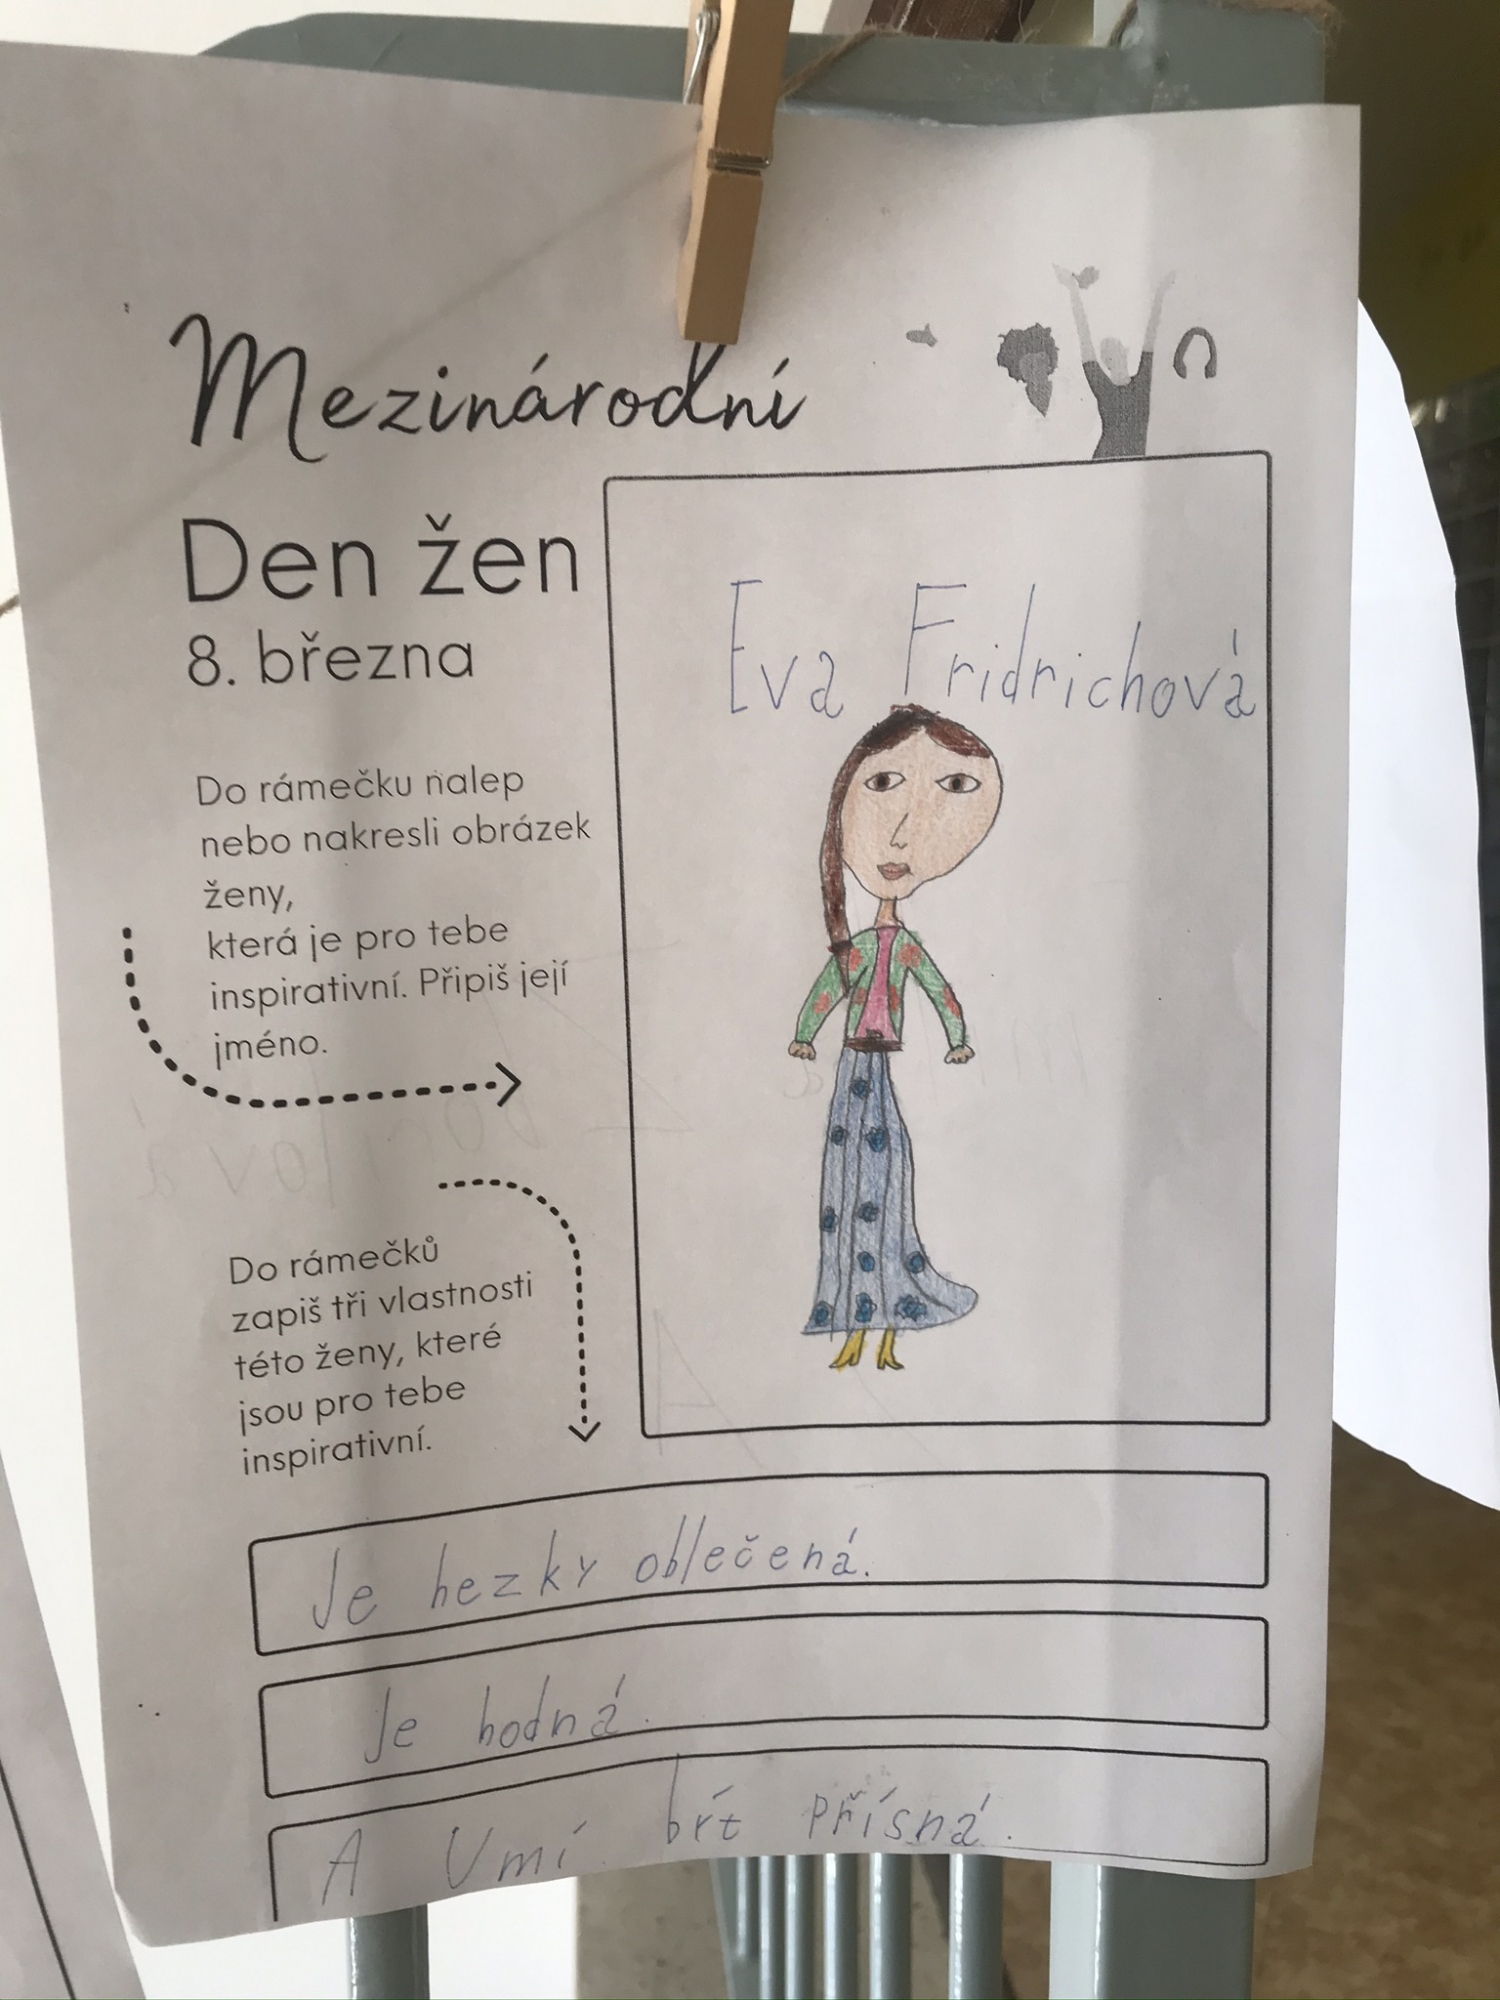 Mezinárodní
Den žen
8. března
Eva Fridrichová
Do rámečku nalep
nebo nakresli obrázek
ženy,
která je pro tebe
inspirativní. Připiš její
jméno.
Do rámečků
zapiš tři vlastnosti
této ženy, které
jsou pro tebe
inspirativní.
Je hezky oblečená.
Je hodná.
A Umí být přísná.